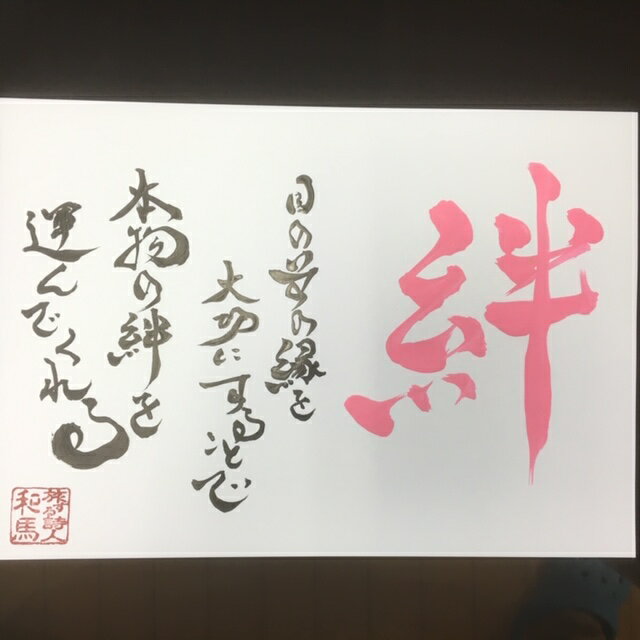 絆
目の前の縁を
大切にすることで
本物の絆を
運んでくれる
詩人
和馬